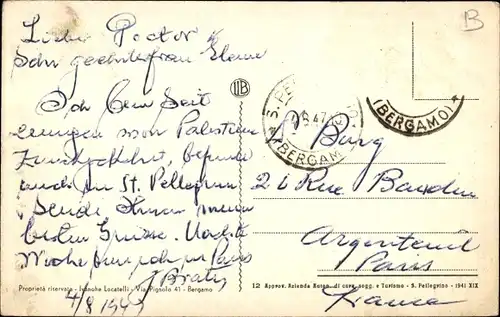 B
Lieber Doctor &
Sehr geehrte frau
Ich bin seit
von Palestina
zurückgekehrt, befinde
auch in St. Pellegrino
Sende Ihnen meine
besten Grüsse. Nächste
Woche bin ich in Paris
4/8 1947
Proprietà riservata - Ivanohe Locatelli - Via Pignolo 41 - Bergamo
S. PE
8.47
(BERGAMO)
(BERGAMO)
Burg
21 Rue
Argenteuil
Paris
France
12 Approv. Azienda Auton. di cura, sogg. e Turismo - S. Pellegrino - 1941 XIX